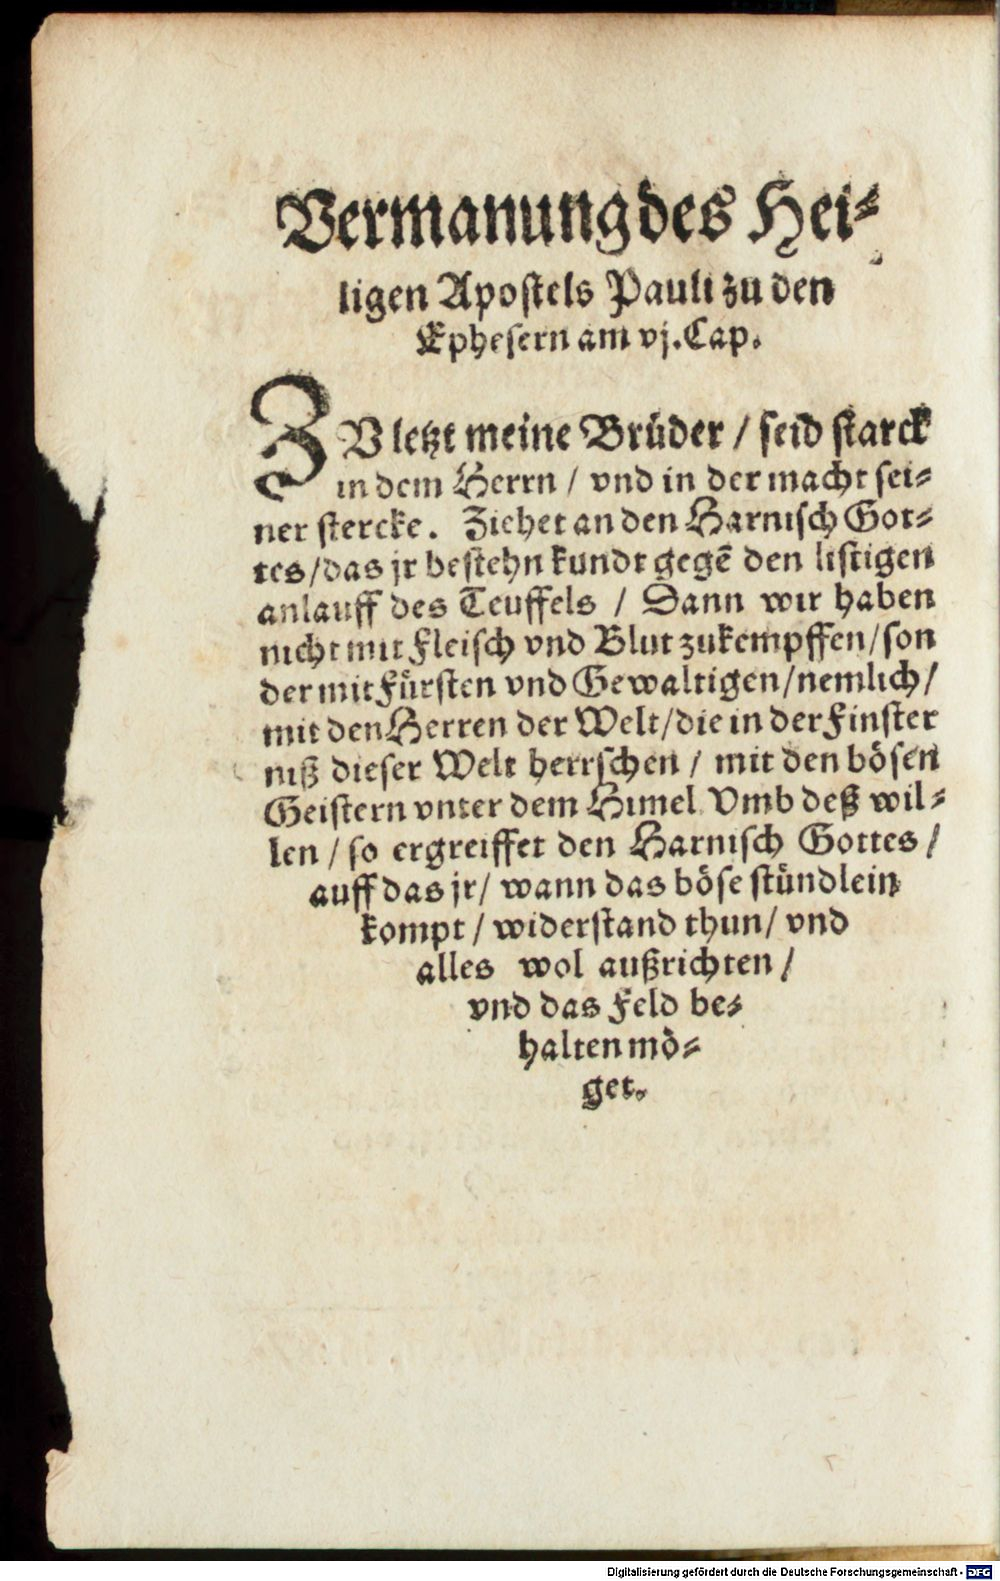 Vermanung des Hei-
ligen Apostels Pauli zu den
Ephesern am vj. Cap.
ZV letzt meine Brüder / seid starck
in dem Herrn / vnd in der macht sei-
ner stercke. Ziehet an den Harnisch Got-
tes / das jr bestehn kundt gegē den listigen
anlauff des Teuffels / Dann wir haben
nicht mit Fleisch vnd Blut zukempffen / son
der mit Fürsten vnd Gewaltigen / nemlich /
mit den Herren der Welt / die in der Finster
niß dieser Welt herrschen / mit den bösen
Geistern vnter dem Himel Vmb deß wil-
len / so ergreiffet den Harnisch Gottes /
auff das jr / wann das böse stündlein
kompt / widerstand thun / vnd
alles wol außrichten /
vnd das Feld be-
halten mö-
get.
Digitalisierung gefördert durch die Deutsche Forschungsgemeinschaft - DFG